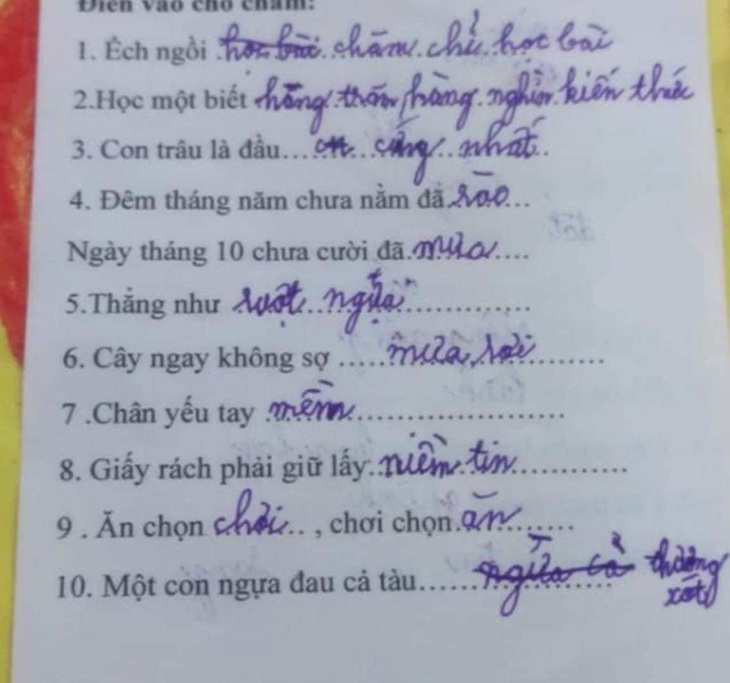 Điền vào chỗ chấm:
1. Ếch ngồi học bài chăm chỉ học bài
2.Học một biết hàng trăm hàng nghìn kiến thức
3. Con trâu là đầu... cứng nhất..
4. Đêm tháng năm chưa nằm đã sào...
Ngày tháng 10 chưa cười đã.mưa....
5.Thẳng như ruột ngựa..............
6. Cây ngay không sợ .....mưa rơi.........
7 .Chân yếu tay mềm......................
8. Giấy rách phải giữ lấy..niềm tin............
9 . Ăn chọn chơi.. , chơi chọn.ăn.......
10. Một con ngựa đau cả tàu......ngựa cả thương
xót